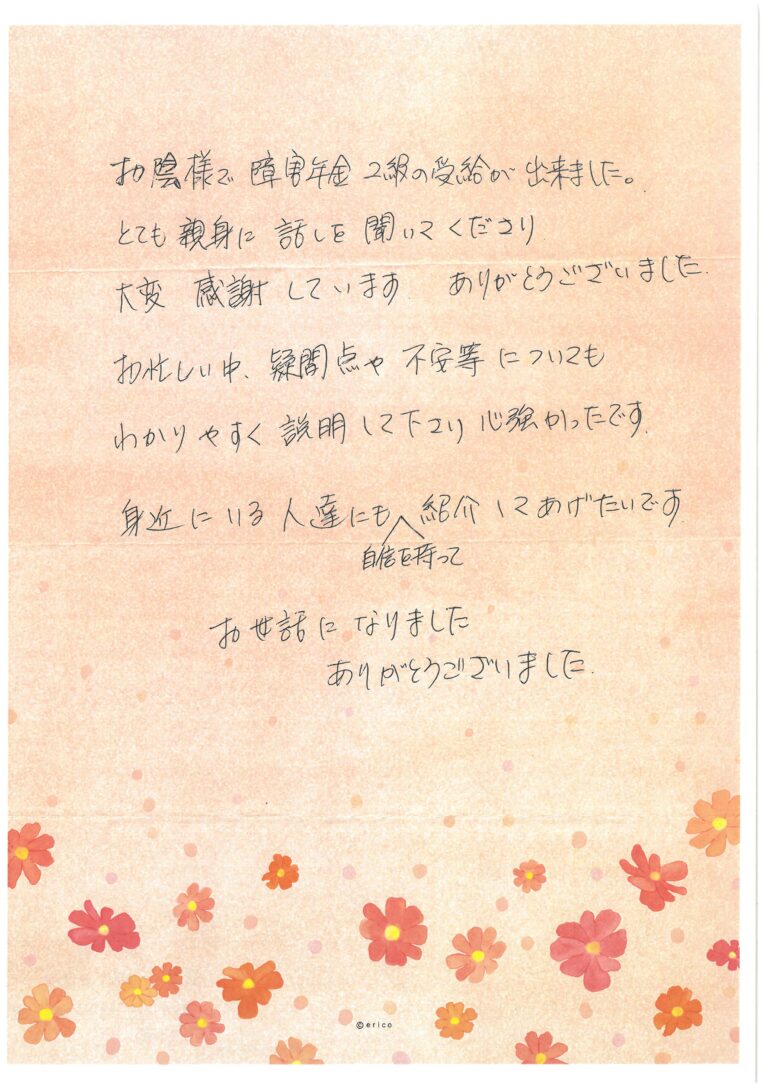 お陰様で 障害年金 2級の受給が 出来ました。
とても 親身に 話しを 聞いてくださり
大変 感謝しています. ありがとうございました.
お忙しい中、疑問点や 不安等についても
わかりやすく 説明して下さり 心強かったです.
身近にいる 人達にも 紹介してあげたいです.
自信を持って
お世話に なりました
ありがとうございました.
©erico